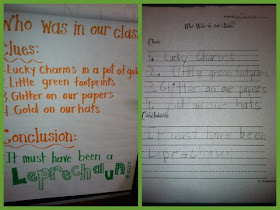 Who Was in our class
Clues:
1 Lucky Charms in a pot of gold
2 Little green footprints
3 Glitter on our papers
4 Gold on our hats
Conclusion:
It must have been a
Leprechaun
Who Was in our class?
Clues
1. Lucky Charms
2. Little green footprints
3. Glitter on our papers
4. gold on our hats
Conclusion
It must have been
Leprechaun